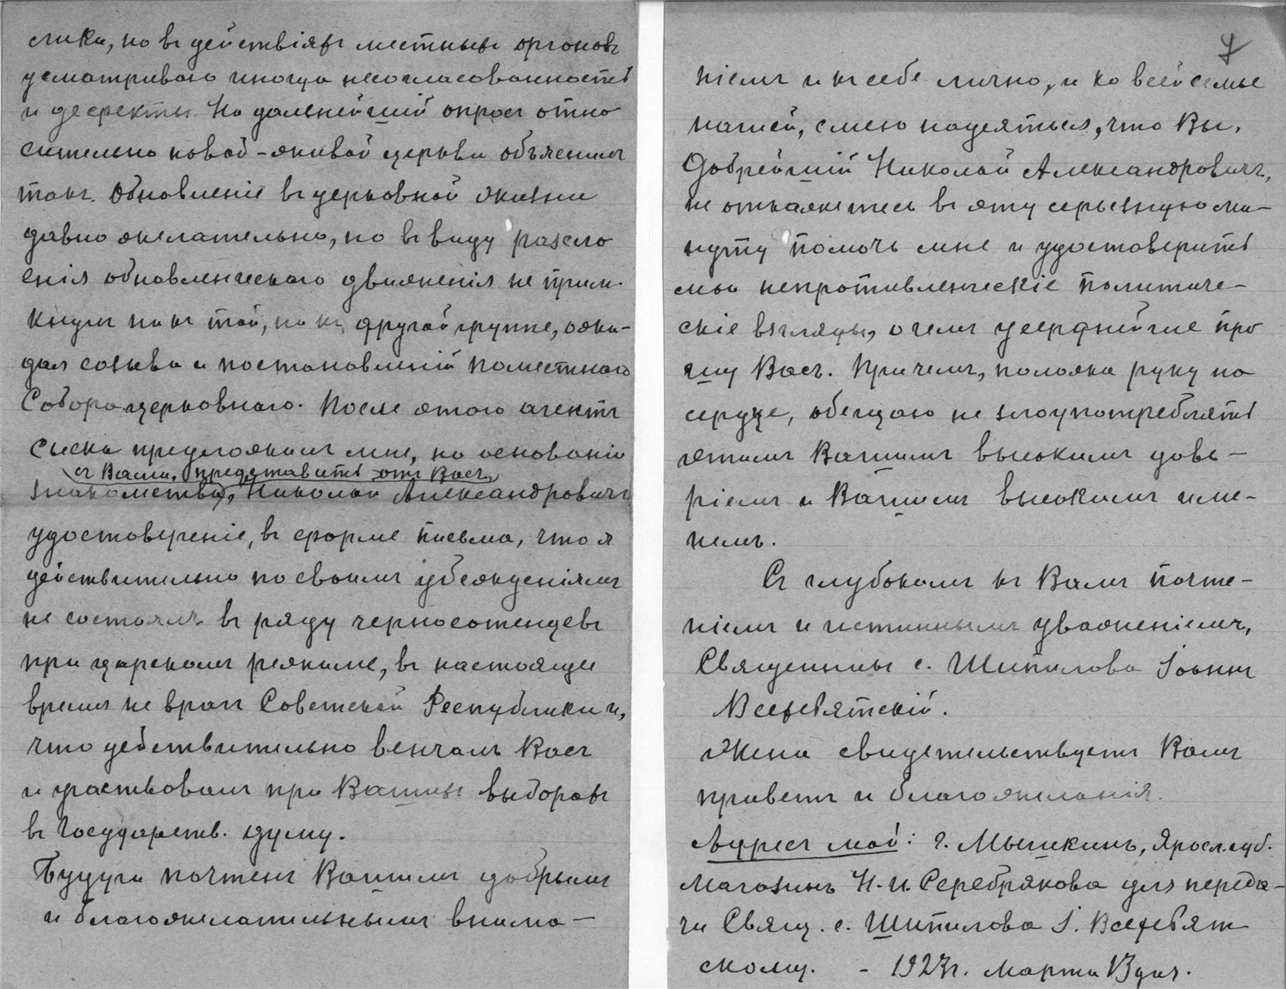 слики, но въ действіяхъ местныхъ органовъ
усматриваю иногда несогласованность
и дефекты. На дальнейшій опросъ отно
сительно новой-живой церкви объяснилъ
такъ. Обновленіе въ церковной жизни
давно желательно, но въ виду разсло
енія обновленческаго движенія не прим-
кнулъ ни къ той, ни къ другой группе, ожи-
дая созыва и постановленій Поместнаго
Собора церковнаго. После этого агентъ
сыска предложилъ мне, на основаніи
съ Вами, представить отъ Васъ,
знакомства, Николай Александровичъ
удостовереніе, въ форме письма, что я
действительно по своимъ убежденіямъ
не состоялъ въ ряду черносотенцевъ
при царскомъ режиме, въ настоящее
время не врагъ Советской Республики и,
что действительно венчалъ Васъ
и участвовалъ при Вашихъ выборахъ
въ Государств. думу.
Будучи почтенъ Вашимъ добрымъ
и благожелательнымъ внима-
7
ніемъ и къ себе лично, и ко всей семье
нашей, смею надеяться, что Вы,
Добрейшій Николай Александровичъ,
не откажетесь въ эту серьезную ми-
нуту помочь мне и удостоверить
мои непротивленческіе политиче-
скіе взгляды, о чемъ усерднейше про
шу Васъ. Причемъ, положа руку на
сердце, обещаю не злоупотреблять
этимъ Вашимъ высокимъ дове-
ріемъ и Вашимъ высокимъ име-
немъ.
Съ глубокимъ къ Вамъ почте-
ніемъ и истиннымъ уваженіемъ,
Священникъ с. Шипилова Іоаннъ
Всехсвятскій.
Жена свидетельствуетъ Вамъ
приветъ и благожеланія.
Адресъ мой: г. Мышкинъ, Яросл. губ.
Магазинъ Н. И. Серебрякова для переда-
чи Свящ. с. Шипилова І. Всехсвят-
скому. - 1923 г. Марта 13 дня.